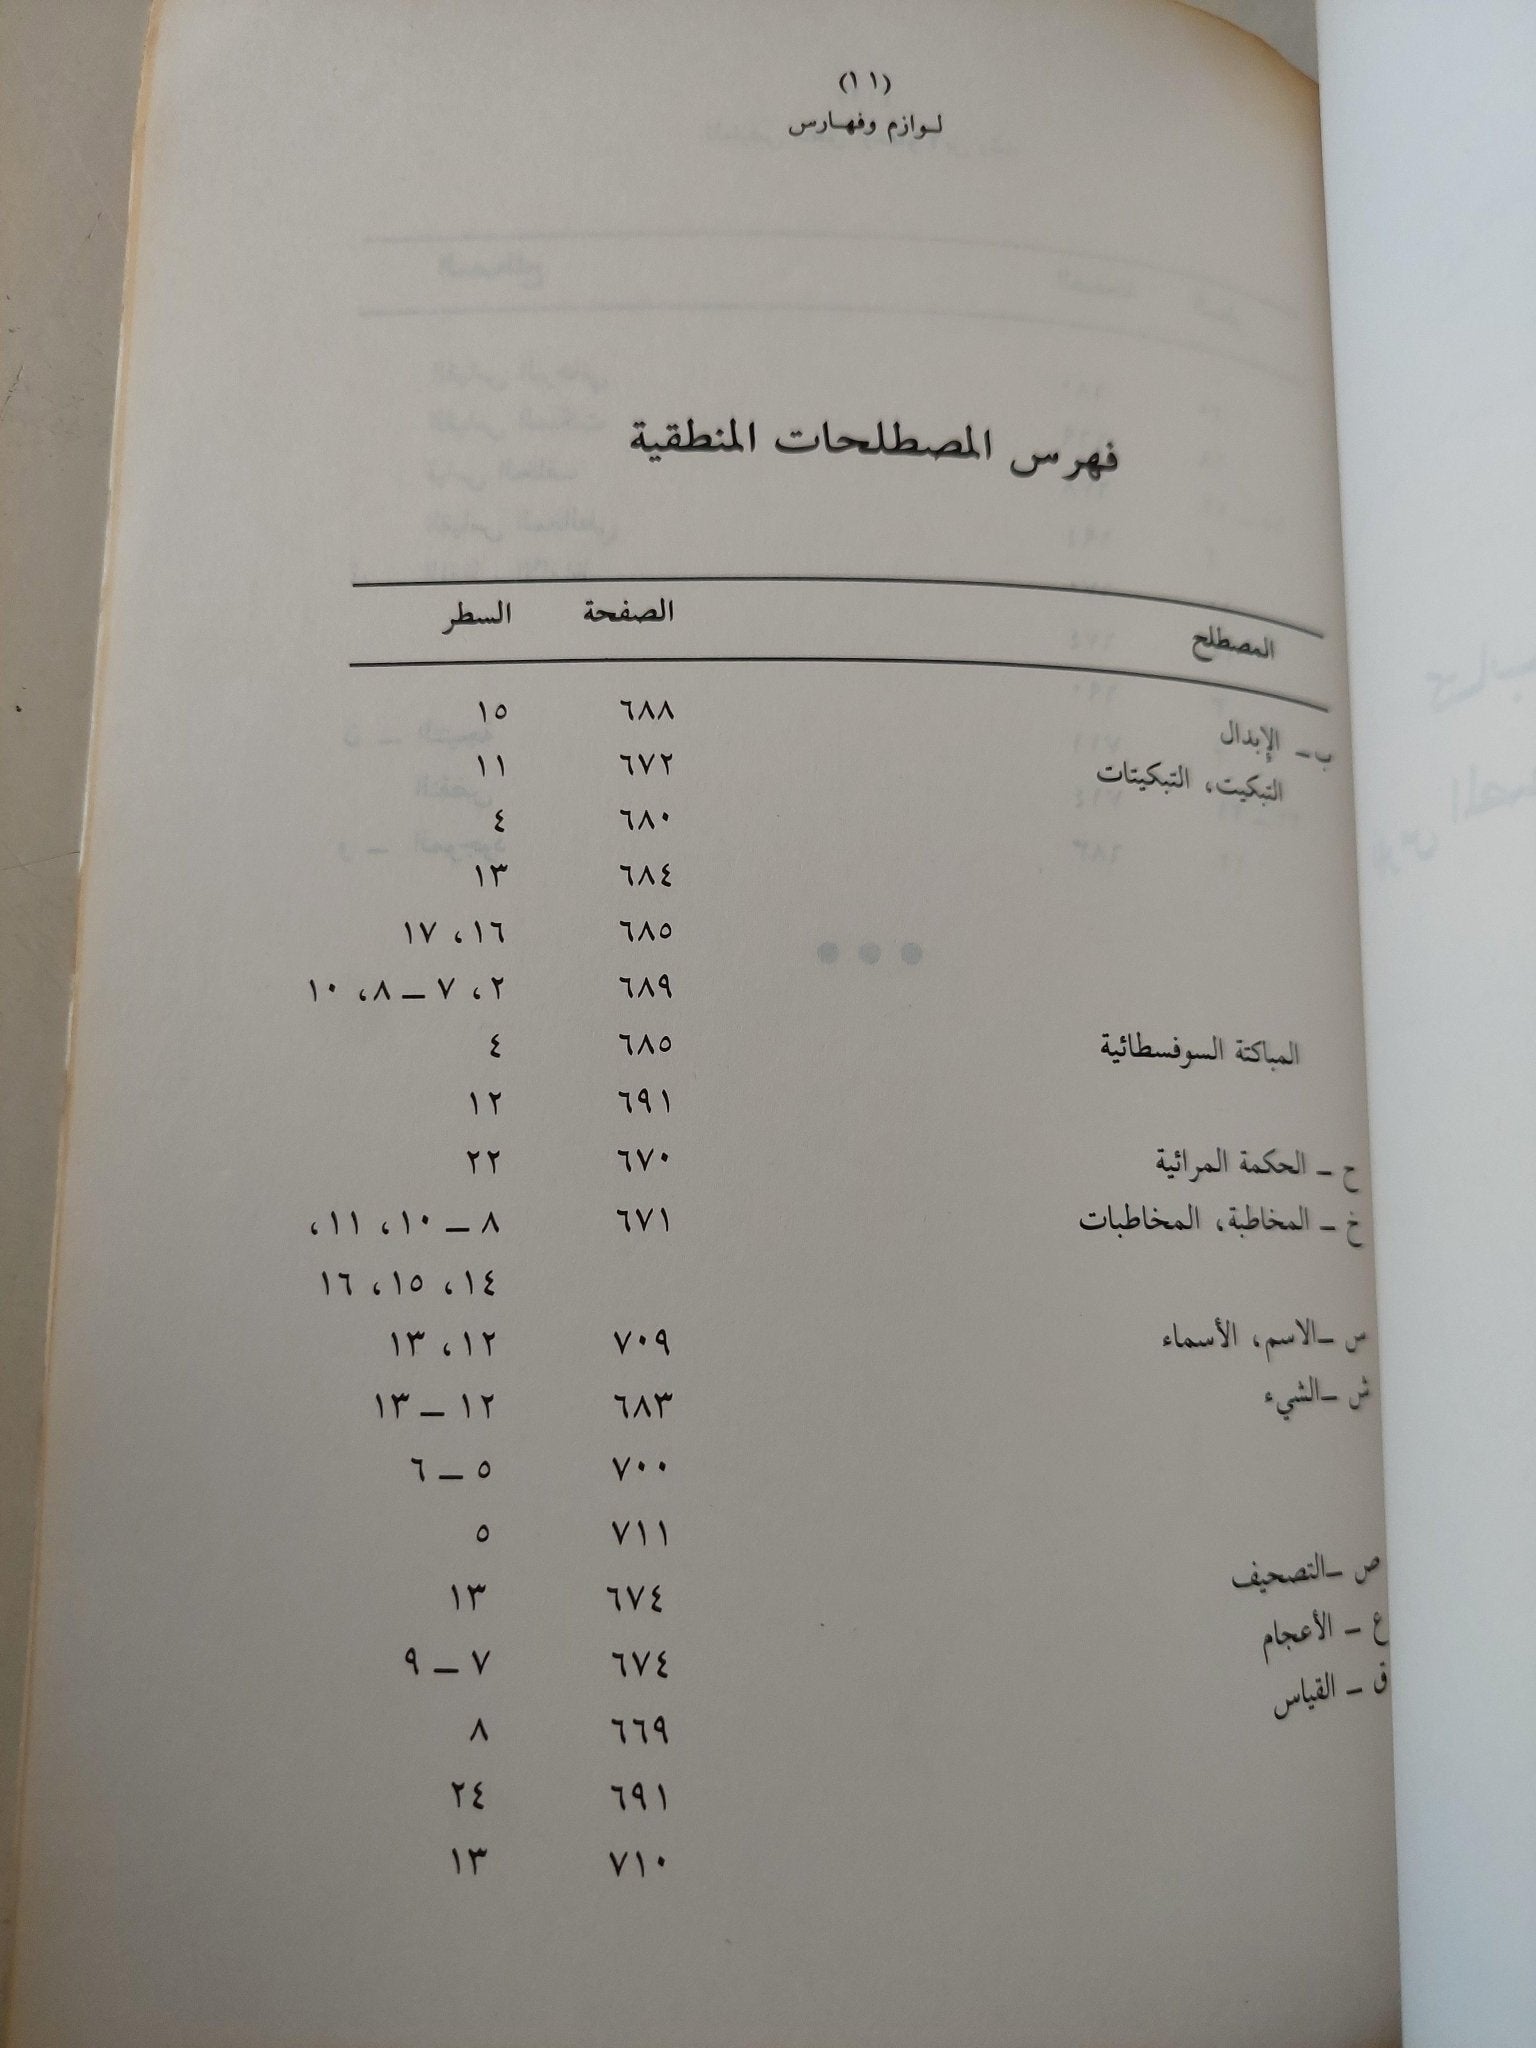 (١١)
لـوازم وفهـارس
فهرس المصطلحات المنطقية
المصطلح الصفحة السطر
ب ـ الإبدال ٦٨٨ ١٥
التبكيت، التبكيتات ٦٧٢ ١١
٦٨٠ ٤
٦٨٤ ١٣
٦٨٥ ١٦، ١٧
٦٨٩ ٢، ٧ ـ ٨، ١٠
المباكتة السوفسطائية ٦٨٥ ٤
٦٩١ ١٢
ح ـ الحكمة المرائية ٦٧٠ ٢٢
خ ـ المخاطبة، المخاطبات ٦٧١ ٨ ـ ١٠، ١١،
١٤، ١٥، ١٦
س ـ الاسم، الأسماء ٧٠٩ ١٢، ١٣
ش ـ الشيء ٦٨٣ ١٢ ـ ١٣
٧٠٠ ٥ ـ ٦
٧١١ ٥
ص ـ التصحيف ٦٧٤ ١٣
ع ـ الأعجام ٦٧٤ ٧ ـ ٩
ق ـ القياس ٦٦٩ ٨
٦٩١ ٢٤
٧١٠ ١٣